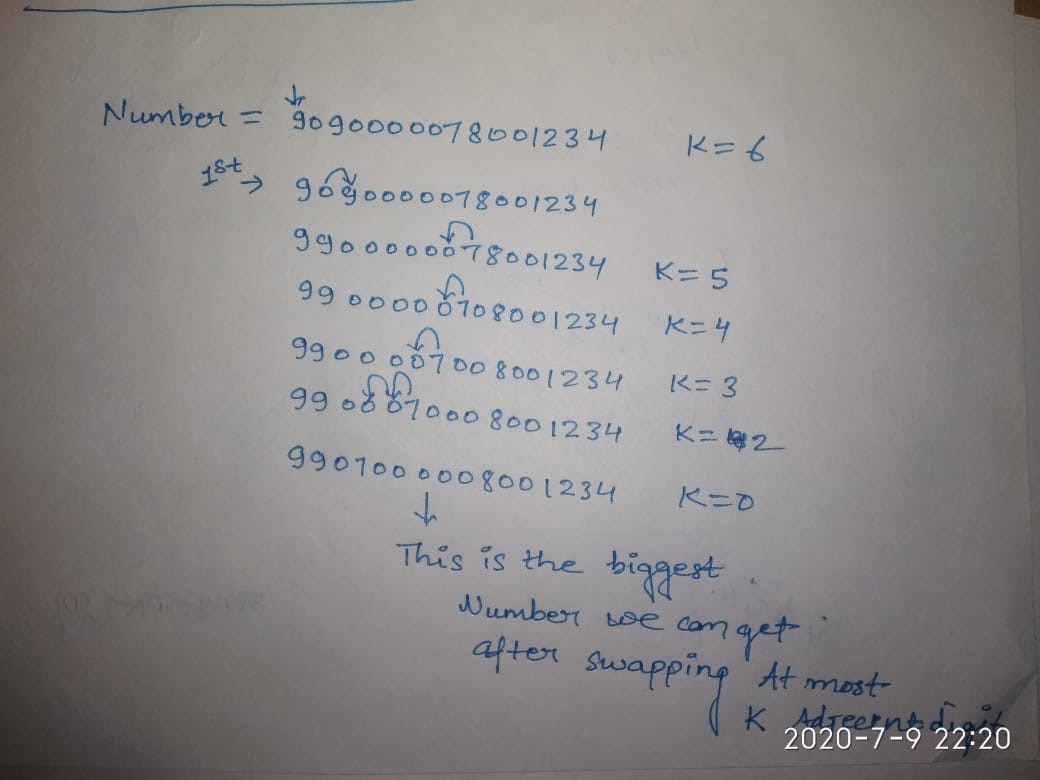 Number = 9090000078001234 K = 6
1st → 9090000078001234
9900000078001234 K = 5
9900000708001234 K = 4
9900007008001234 K = 3
9900070008001234 K = 2
9907000008001234 K = 0
This is the biggest
Number we can get
after swapping At most
K digit
2020-7-9 22:20